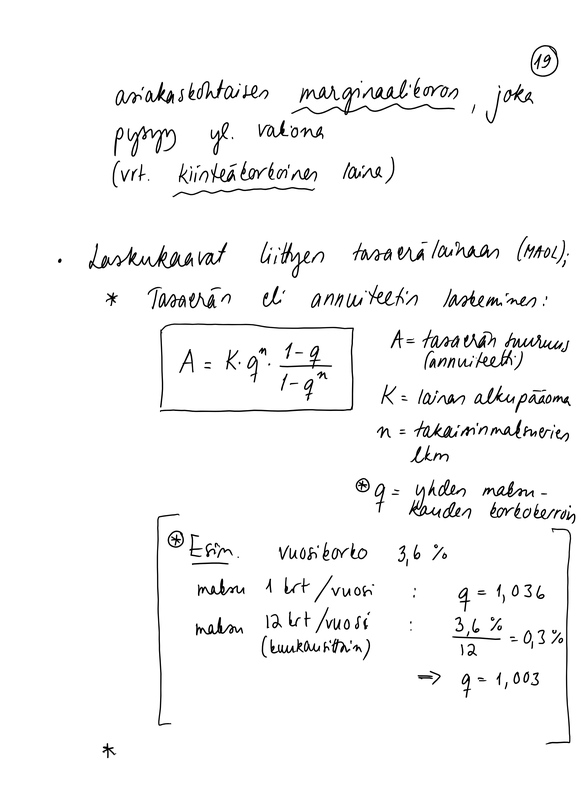 19
asiakaskohtaisen marginaalikoron, joka
pysyy yl. vakiona
(vrt. kiinteäkorkoinen laina)
• Laskukaavat liittyen tasaerälainaan (MAOL);
* Tasaerän eli annuiteetin laskeminen:
A = K · qⁿ · (1-q)/(1-qⁿ)
A = tasaerän suuruus
(annuiteetti)
K = lainan alkupääoma
n = takaisinmaksuerien
lkm
⊛ q = yhden maksu-
kauden korkokerroin
⊛ Esim. vuosikorko 3,6 %
maksu 1 krt/vuosi : q = 1,036
maksu 12 krt/vuosi : 3,6 % / 12 = 0,3 %
(kuukausittain)
⇒ q = 1,003
*